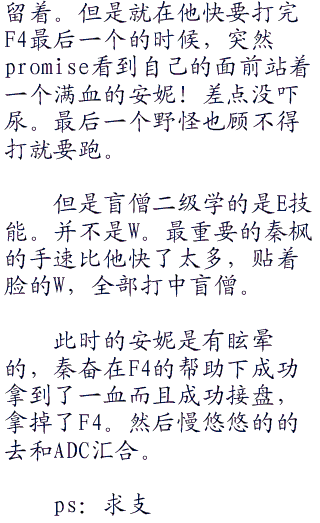 留着。但是就在他快要打完
F4最后一个的时候，突然
promise看到自己的面前站着
一个满血的安妮！差点没吓
尿。最后一个野怪也顾不得
打就要跑。
但是盲僧二级学的是E技
能。并不是W。最重要的秦枫
的手速比他快了太多，贴着
脸的W，全部打中盲僧。
此时的安妮是有眩晕
的，秦奋在F4的帮助下成功
拿到了一血而且成功接盘，
拿掉了F4。然后慢悠悠的的
去和ADC汇合。
ps：求支